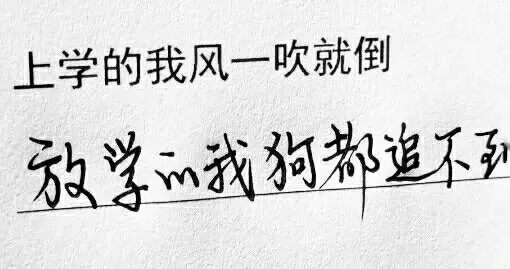 上学的我风一吹就倒
放学的我狗都追不到